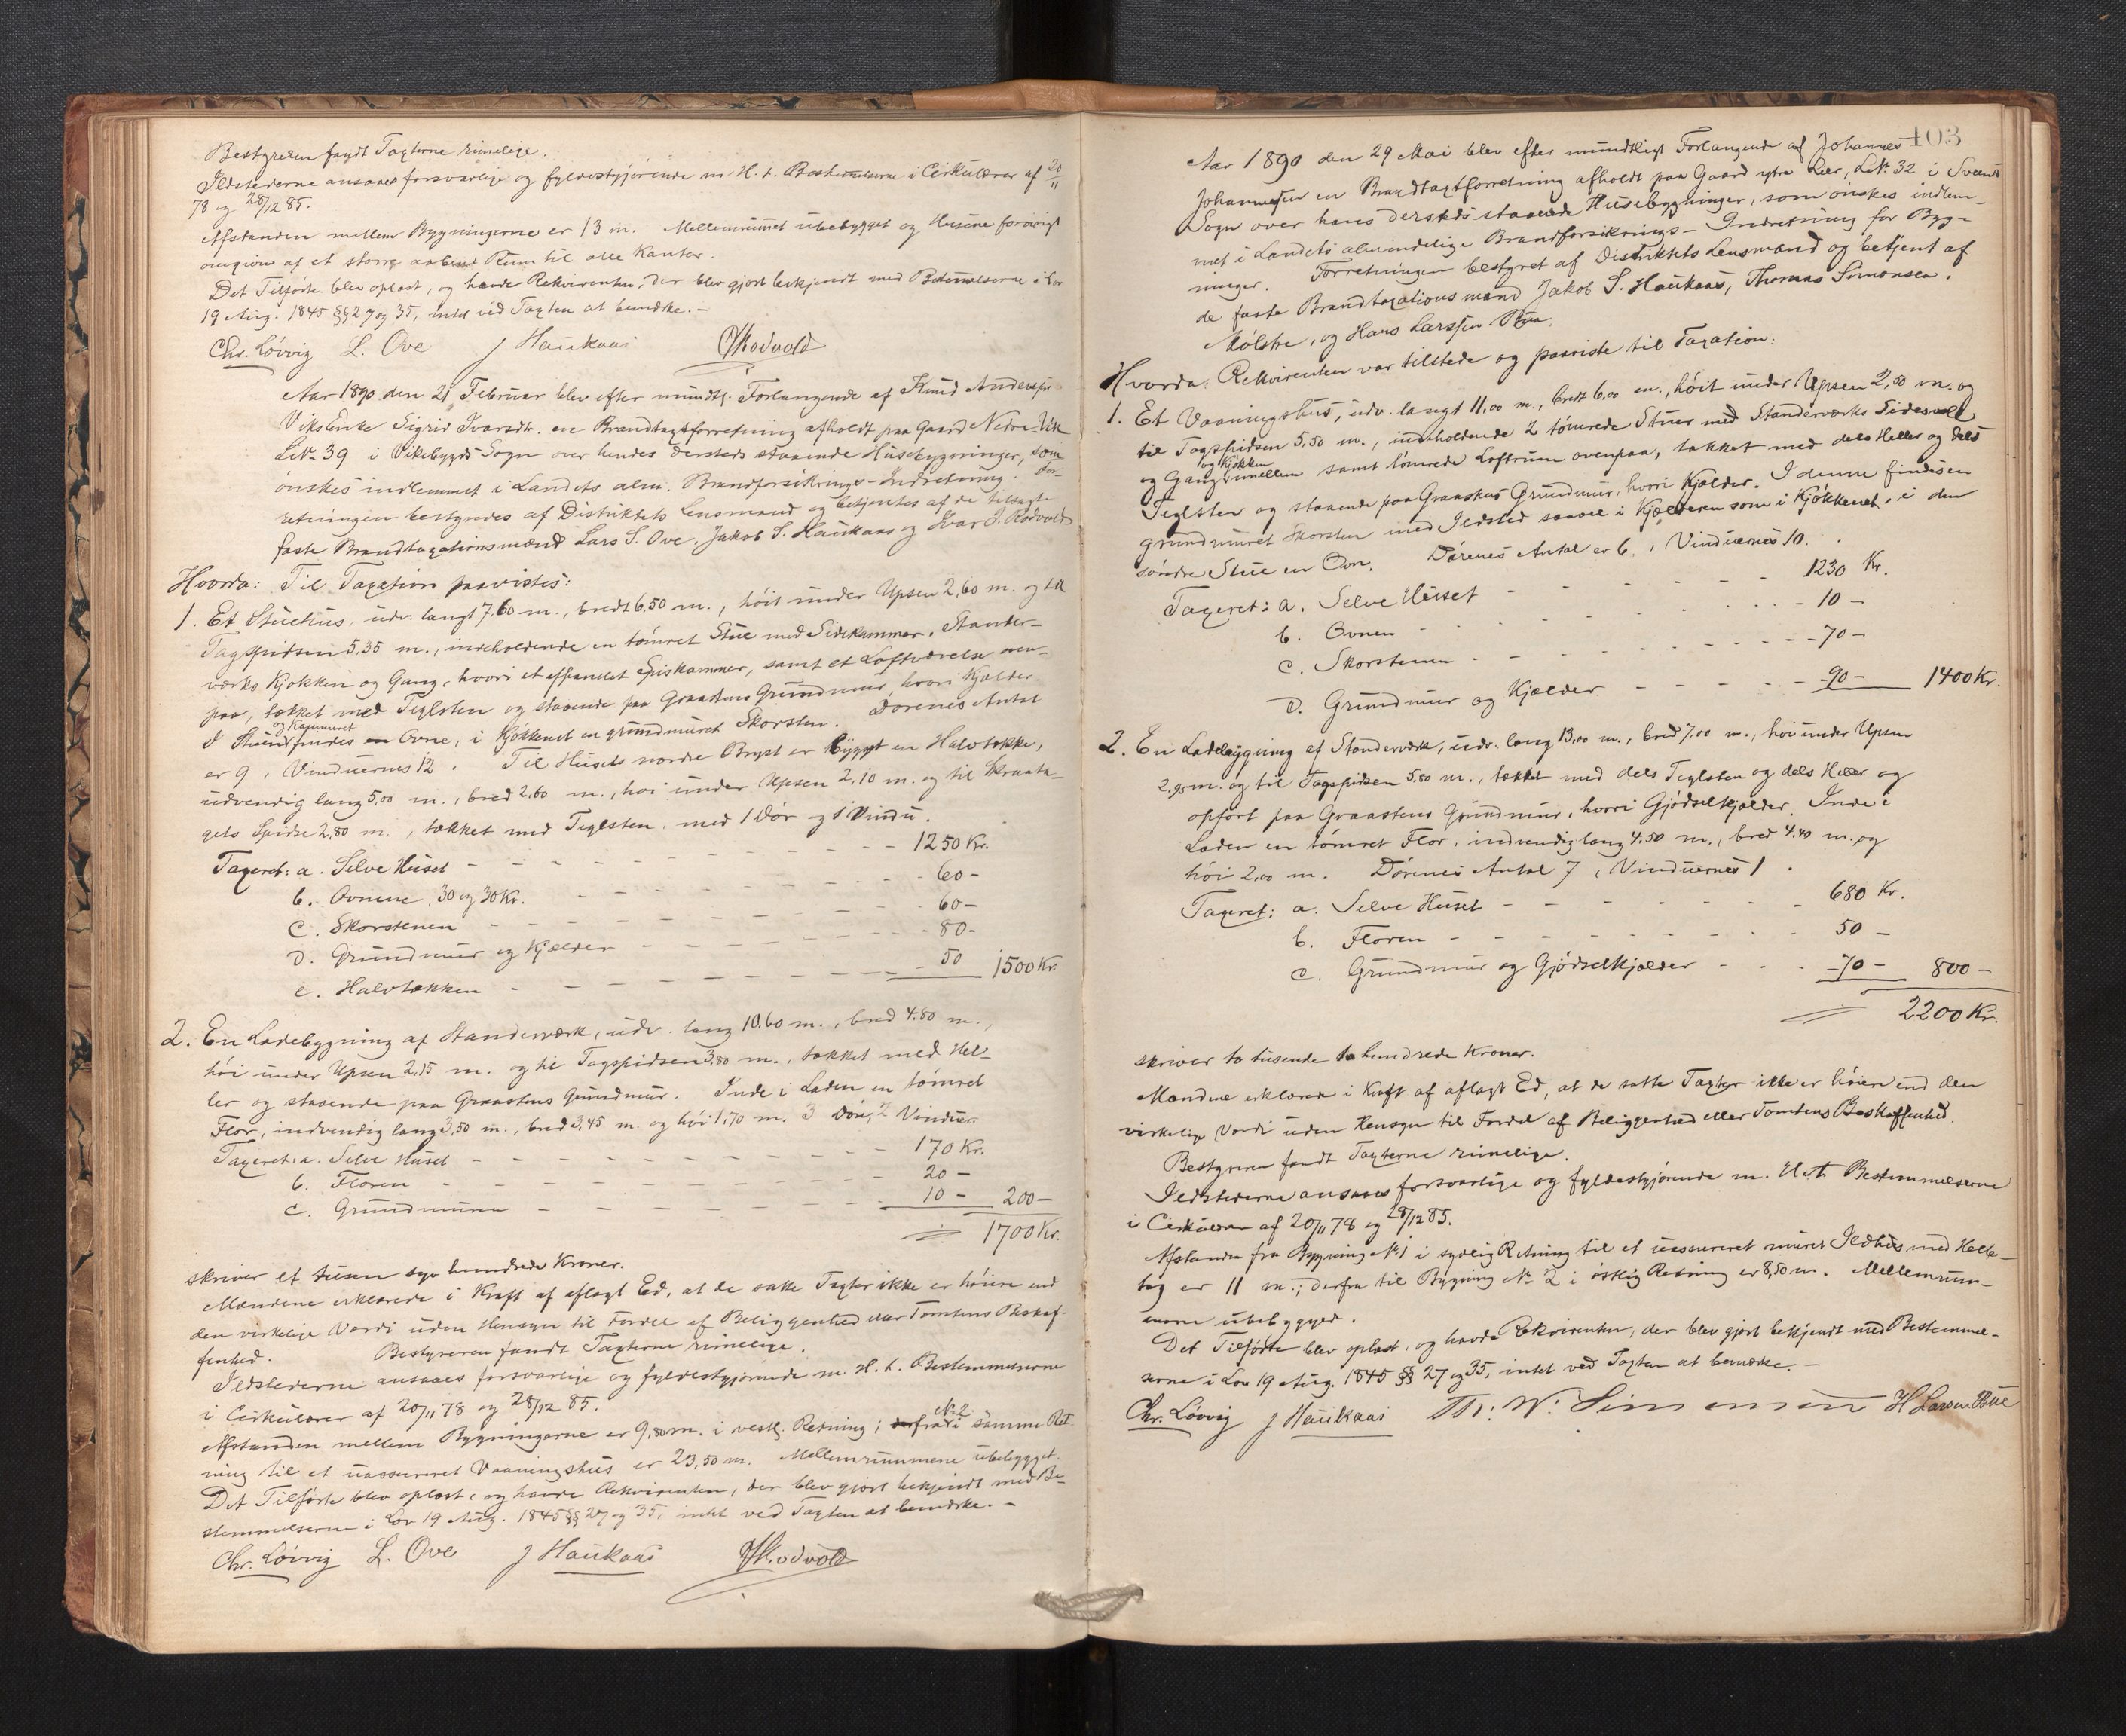 Bestyreren fandt Taxterne rimelige.
Ildstederne ansaaes forsvarlige og fyldestgjørende m. H. t. Bestemmelserne i Cirkulærer af 20/11
78 og 28/12 85.
Afstanden mellem Bygningerne er 13 m. Mellemrummet ubebygget og Husene forøvrigt
omgivne af et større aabent Rum til alle Kanter.
Det Tilførte blev oplæst, og havde Rekvirenten, der blev gjort bekjendt med Bestemmelserne i Lov
19 Aug. 1845 §§ 27 og 35, intet ved Taxten at bemærke. -
Chr. Løvvig L. Ove J Haukaas Rødvold
Aar 1890 den 21 Februar blev efter mundtl. Forlangende af Knud Anderssøn
Viks Enke Sigrid Ivarsdtr. en Brandtaxtforretning afholdt paa Gaard Nedre Vik
L.No. 39 i Vikebygds Sogn over hendes dersteds staaende Husebygninger, som
ønskes indlemmet i Landets alm. Brandforsikrings-Indretning. For-
retningen bestyredes af Distriktets Lensmand og betjentes af de tilsagte
faste Brandtaxationsmænd Lars S. Ove, Jakob S. Haukaas og Ivar J. Rødvold
Hvorda: Til Taxation paavistes:
1. Et Stuehus, udv. langt 7,60 m., bredt 6,50 m., høit under Upsen 2,60 m. og til
Tagspidsen 5,35 m., indeholdende en tømret Stue med Sidekammer, Stander-
værks Kjøkken og Gang, hvori et afpanelet Spiskammer, samt et Loftværelse oven-
paa, tækket med Teglsten og staaende paa Graastens Grundmur, hvori Kjælder.
og Kammeret
I Stuen findes en Ovne, i Kjøkkenet en grundmuret Skorsten. Dørenes Antal
er 9, Vinduernes 12. Til Husets nordre Bryst er bygget en Halvtække,
udvendig lang 5,00 m., bred 2,60 m., høi under Upsen 2,10 m. og til Skraata-
gets Spidse 2,80 m., tækket med Teglsten, med 1 Dør og 1 Vindu.
Taxeret: a. Selve Huset - - - 1250 Kr.
b. Ovnene, 30 og 30 Kr. - - - 60 -
c. Skorstenen - - - 60 -
d. Grundmur og Kjælder - - - 80 -
e. Halvtækken - - - 50 1500 Kr.
2. En Ladebygning af Standerværk, udv. lang 10,60 m., bred 4,80 m.,
høi under Upsen 2,15 m. og til Tagspidsen 3,80 m., tækket med Hel-
ler og staaende paa Graastens Grundmur. Inde i Laden en tømret
Flor, indvendig lang 3,50 m., bred 3,45 m. og høi 1,70 m. 3 Døre, 2 Vinduer.
Taxeret: a. Selve Huset - - - 170 Kr.
b. Floren - - - 20 -
c. Grundmuren - - - 10 - 200 -
1700 Kr.
skriver et tusen syv hundrede Kroner.
Mændene erklærede i Kraft af aflagt Ed, at de satte Taxter ikke er høiere end
den virkelige Værdi uden Hensyn til Fordel af Beliggenhed eller Tomtens Beskaf-
fenhed. Bestyreren fandt Taxterne rimelige.
Ildstederne ansaaes forsvarlige og fyldestgjørende m. H. t. Bestemmelserne
i Cirkulærer af 20/11 78 og 28/12 85.
No. 2
Afstanden mellem Bygningerne er 9,80 m. i vestl. Retning; derfra i samme Ret-
ning til et uassureret Vaaningshus er 23,50 m. Mellemrummene ubebygget.
Det Tilførte blev oplæst, og havde Rekvirenten, der blev gjort bekjendt med Be-
stemmelserne i Lov 19 Aug. 1845 §§ 27 og 35, intet ved Taxten at bemærke. -
Chr. Løvvig L. Ove J Haukaas Rødvold
403
Aar 1890 den 29 Mai blev efter mundtligt Forlangende af Johannes
Johannessen en Brandtaxtforretning afholdt paa Gaard ytre Lier, L.No. 32 i Sveens
Sogn over hans dersteds staaende Husebygninger, som ønskes indlem-
met i Landets almindelige Brandforsikrings-Indretning for Byg-
ninger. Forretningen bestyret af Distriktets Lensmand og betjent af
de faste Brandtaxationsmænd Jakob S. Haukaas, Thomas Simonsen
Mølstre, og Hans Larssen
Hvorda: Rekvirenten var tilstede og paaviste til Taxation:
1. Et Vaaningshus, udv. langt 11,00 m., bredt 6,00 m., høit under Upsen 2,50 m. og
til Tagspidsen 5,50 m., indeholdende 2 tømrede Stuer med Standerværks Sidesval
og Kjøkken
og Gang imellem samt tømrede Loftrum ovenpaa, tækket med dels Heller og dels
Teglsten og staaende paa Graastens Grundmur, hvori Kjælder. I denne findes en
grundmuret Skorsten med Ildsted saavel i Kjælderen som i Kjøkkenet, i den
søndre Stue en Ovn. Dørenes Antal er 6, Vinduernes 10.
Taxeret: a. Selve Huset - - - 1230 Kr.
b. Ovnen - - - 10 -
c. Skorstenen - - - 70 -
d. Grundmur og Kjælder - - - 90 - 1400 Kr.
2. En Ladebygning af Standerværk, udv. lang 13,00 m., bred 7,00 m., høi under Upsen
2,95 m. og til Tagspidsen 5,80 m., tækket med dels Teglsten og dels Heller og
opført paa Graastens Grundmur, hvori Gjødselkjælder. Inde i
Laden en tømret Flor, indvendig lang 4,50 m., bred 4,40 m. og
høi 2,00 m. Dørenes Antal 7, Vinduernes 1.
Taxeret: a. Selve Huset - - - 680 Kr.
b. Floren - - - 50 -
c. Grundmur og Gjødselkjælder - - - 70 - 800 -
2200 Kr.
skriver to tusende to hundrede Kroner.
Mændene erklærede i Kraft af aflagt Ed, at de satte Taxter ikke er høiere end den
virkelige Værdi uden Hensyn til Fordel af Beliggenhed eller Tomtens Beskaffenhed.
Bestyreren fandt Taxterne rimelige.
Ildstederne ansaaes forsvarlige og fyldestgjørende m. H. t. Bestemmelserne
i Cirkulærer af 20/11 78 og 28/12 85.
Afstanden fra Bygning No. 1 i sydlig Retning til et uassureret muret Ildhus med Helle-
tag er 11 m.; derfra til Bygning No. 2 i østlig Retning er 8,50 m. Mellemrum-
mene ubebygged.
Det Tilførte blev oplæst, og havde Rekvirenten, der blev gjort bekjendt med Bestemmel-
serne i Lov 19 Aug. 1845 §§ 27 og 35, intet ved Taxten at bemærke. -
Chr. Løvvig J Haukaas Th: W: Simonsen H Larsen